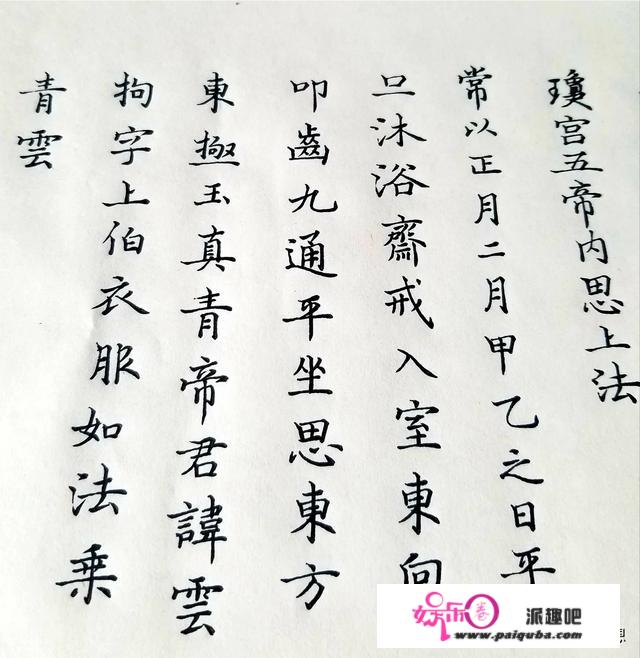 瓊宫五帝内思上法
常以正月二月甲乙之日平
旦沐浴齋戒入室東向
叩齒九通平坐思東方
東極玉真青帝君諱雲
拘字上伯衣服如法乗
青雲
娱乐卷
派趣吧
www.paiquba.com